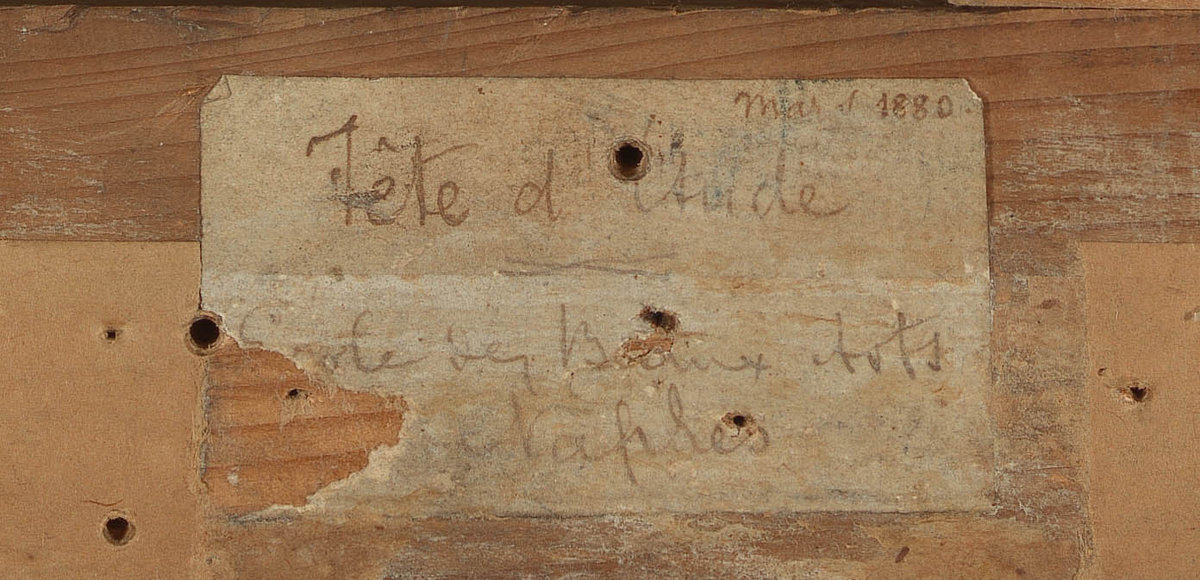 Mars 1880
Tête d'étude
Ecole des Beaux Arts
Naples